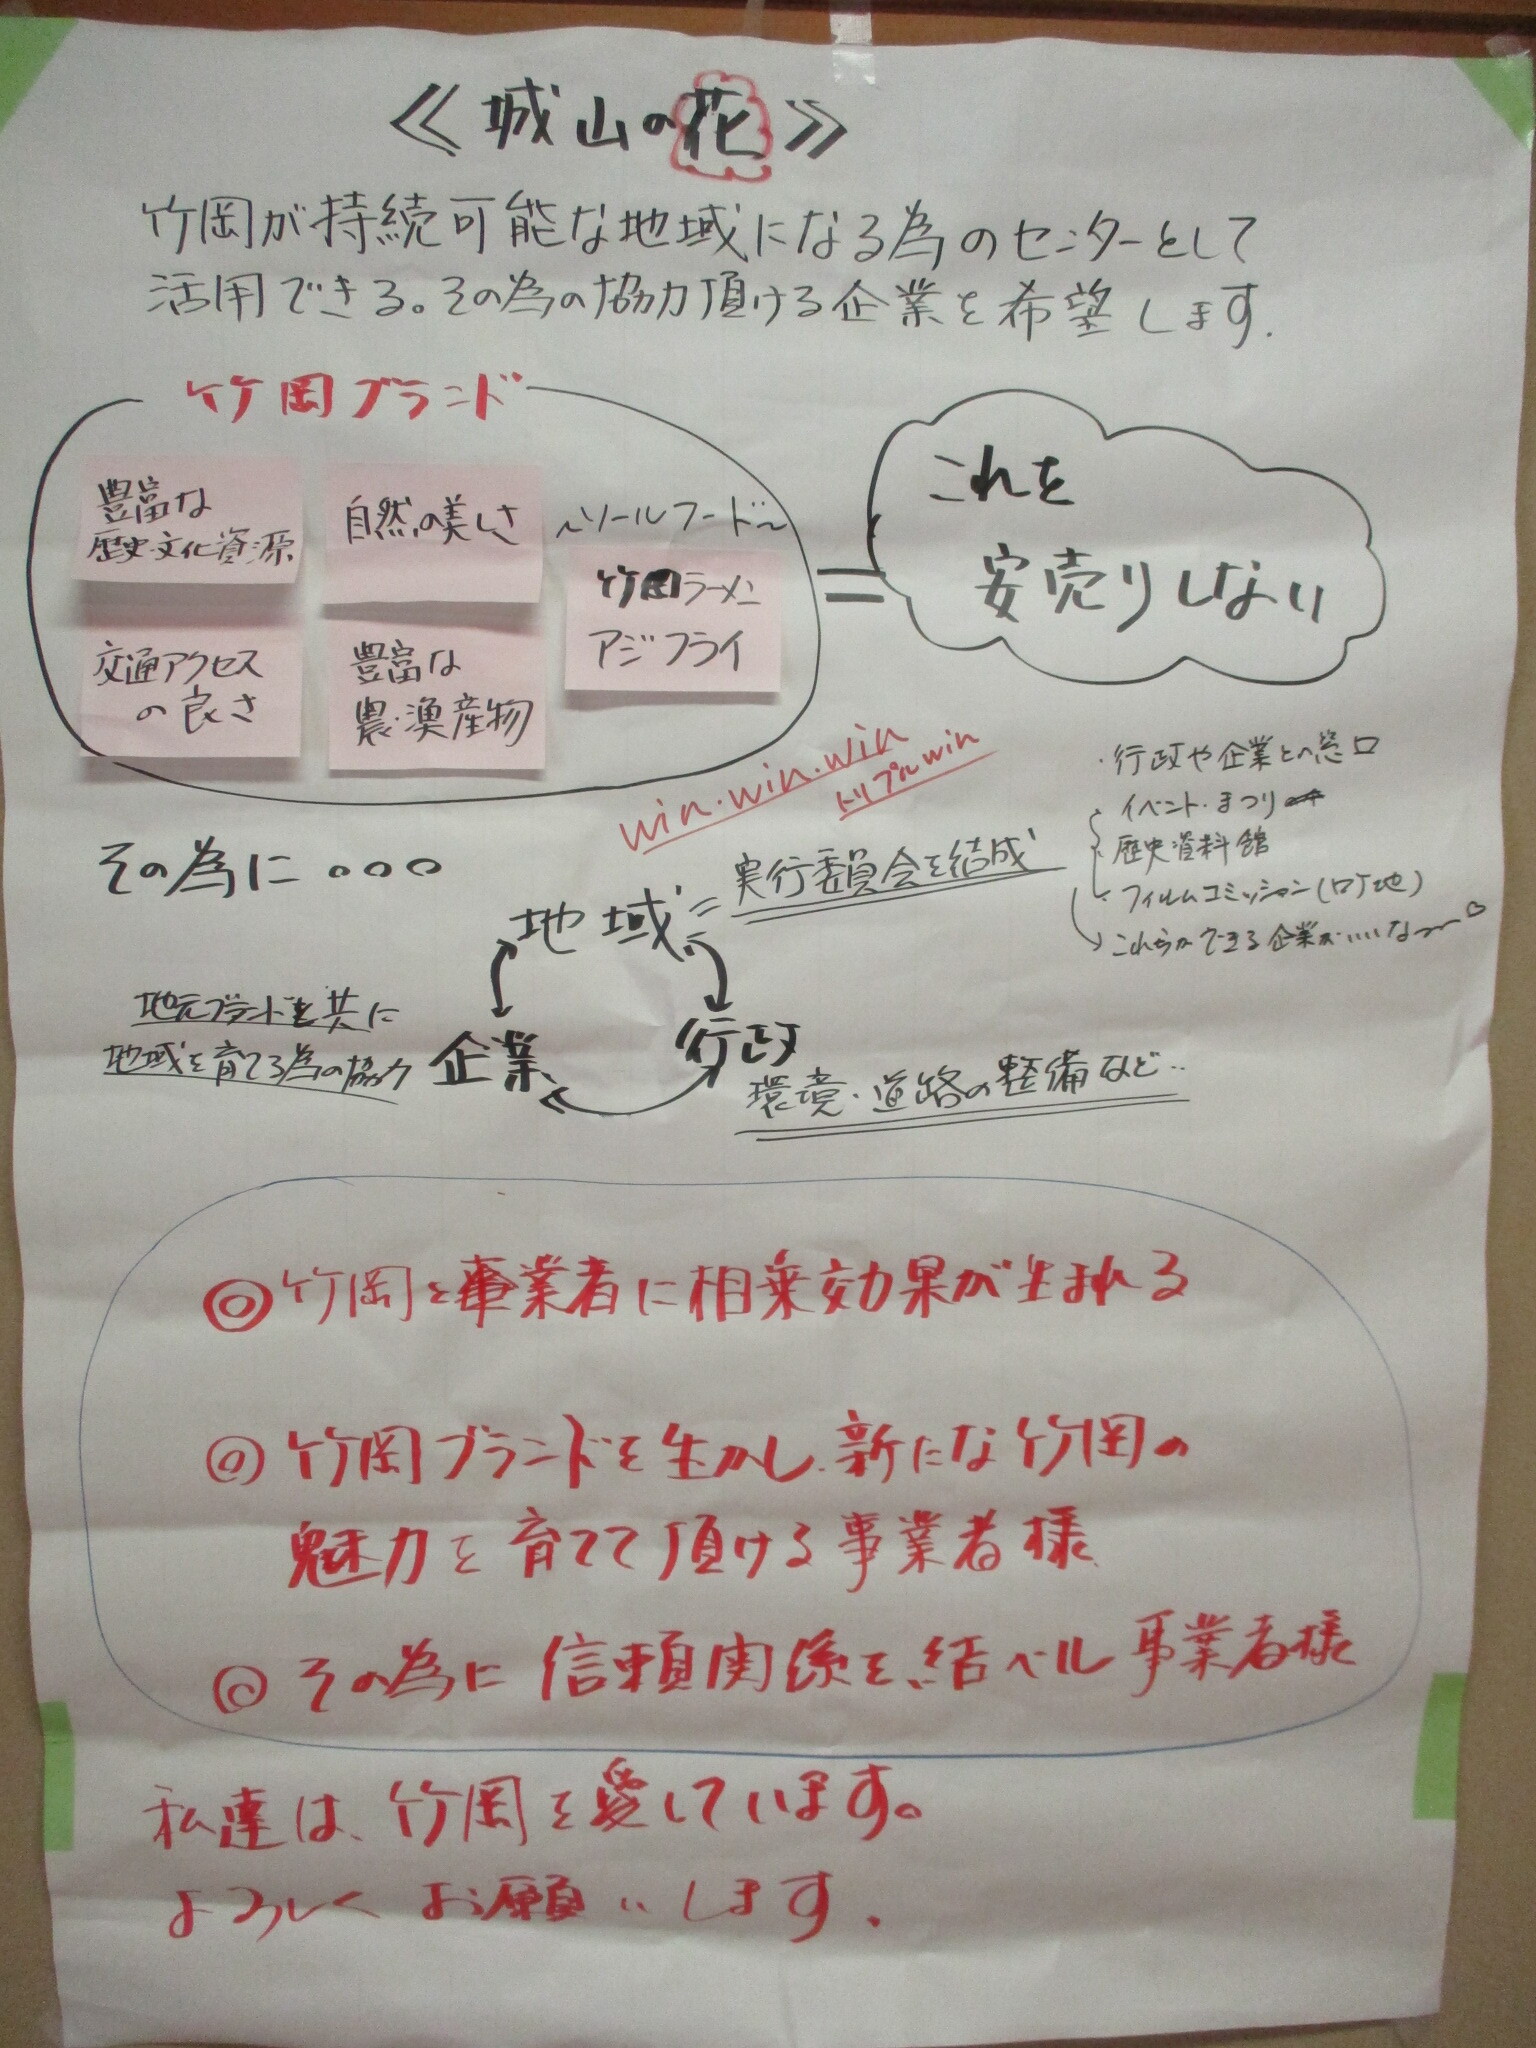 ≪城山の花≫
竹岡が持続可能な地域になる為のセンターとして
活用できる。その為の協力頂ける企業を希望します.
竹岡ブランド
豊富な
歴史・文化資源
自然の美しさ
～ソールフード～
竹岡ラーメン
アジフライ
交通アクセス
の良さ
豊富な
農・漁産物
=
これを
安売りしない
win・win・win
トリプルwin
その為に。。。
地域=実行委員会を結成
・行政や企業との窓口
イベント・まつり
歴史資料館
フィルムコミッション(ロケ地)
これらができる企業が‥‥いいなー
地元ブランドを共に
地域を育てる為の協力
企業
行政
環境・道路の整備など‥
◎竹岡と事業者に相乗効果が生まれる
◎竹岡ブランドを生かし、新たな竹岡の
魅力を育てて頂ける事業者様
◎その為に信頼関係を結べル事業者様
私達は、竹岡を愛しています。
よろしくお願いします.